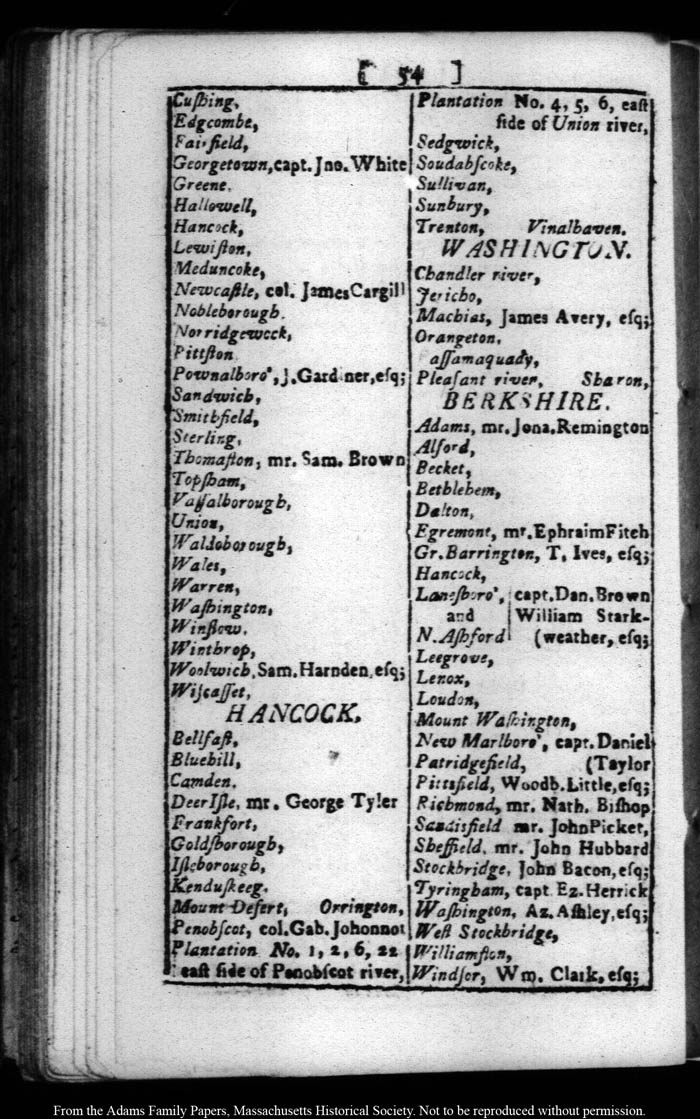 [ 54 ]
Cuſhing,
Edgcombe,
Fairfield,
Georgetown, capt. Jno. White
Greene.
Hallowell,
Hancock,
Lewiſton,
Meduncoke,
Newcaſtle, col. James Cargill
Nobleborough.
Norridgewock,
Pittſton
Pownalboro', J. Gardiner, eſq;
Sandwich,
Smithfield,
Sterling,
Thomaſton, mr. Sam. Brown
Topſham,
Vaſſalborough,
Union,
Waldoborough,
Wales,
Warren,
Waſhington,
Winſlow.
Winthrop,
Woolwich, Sam. Harnden, eſq;
Wiſcaſſet,
HANCOCK.
Bellfaſt,
Bluehill,
Camden.
Deer Iſle, mr. George Tyler
Frankfort,
Goldſborough,
Iſleborough,
Kenduſkeeg.
Mount Deſert, Orrington,
Penobſcot, col. Gab. Johonnot
Plantation No. 1, 2, 6, 22
eaſt ſide of Penobſcot river,
Plantation No. 4, 5, 6, eaſt
ſide of Union river,
Sedgwick,
Soudabſcoke,
Sullivan,
Sunbury,
Trenton, Vinalhaven.
WASHINGTON.
Chandler river,
Jericho,
Machias, James Avery, eſq;
Orangeton,
aſſamaquady,
Pleaſant river, Sharon,
BERKSHIRE.
Adams, mr. Jona. Remington
Alford,
Becket,
Bethlehem,
Dalton,
Egremont, mr. Ephraim Fitch
Gr. Barrington, T. Ives, eſq;
Hancock,
Laneſboro', capt. Dan. Brown
and William Stark-
N. Aſhford (weather, eſq;
Leegrove,
Lenox,
Loudon,
Mount Waſhington,
New Marlboro', capt. Daniel
Patridgefield, (Taylor
Pittsfield, Woodb. Little, eſq;
Richmond, mr. Nath. Biſhop
Sandisfield mr. John Picket,
Sheffield, mr. John Hubbard
Stockbridge, John Bacon, eſq;
Tyringham, capt Ez. Herrick
Waſhington, Az. Aſhley, eſq;
Weſt Stockbridge,
Williamſton,
Windſor, Wm. Clark, eſq;
From the Adams Family Papers, Massachusetts Historical Society. Not to be reproduced without permission.